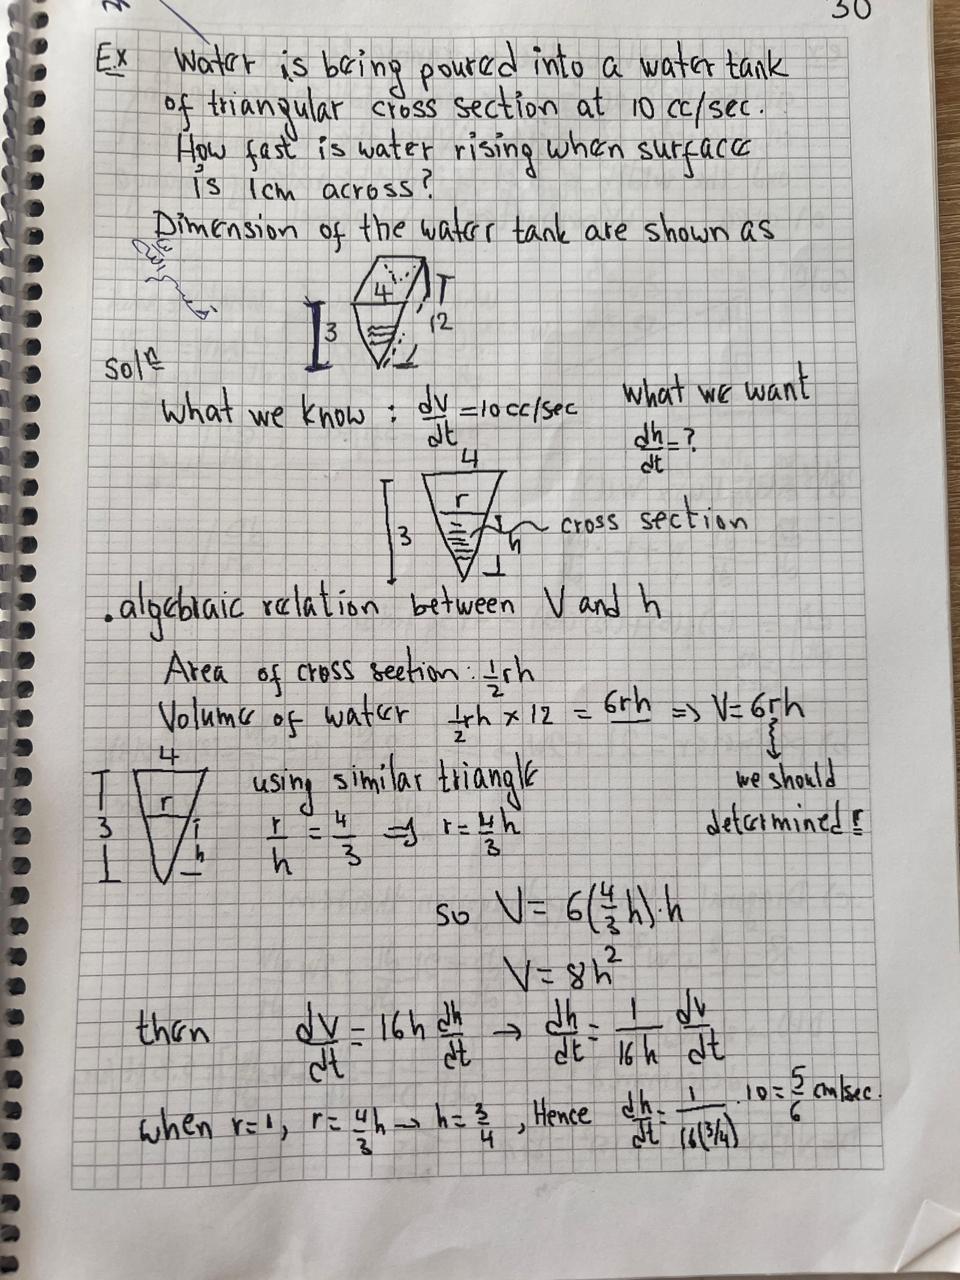 30
Ex Water is being poured into a water tank
of triangular cross section at 10 cc/sec.
How fast is water rising when surface
is 1cm across?
Dimension of the water tank are shown as
4
3
12
Solⁿ
What we know : dV/dt = 10 cc/sec
What we want
dh/dt = ?
4
r
3
h
cross section
. algebraic relation between V and h
Area of cross section : 1/2 rh
Volume of water 1/2 rh × 12 = 6rh ⇒ V = 6rh
we should
determined !
4
r
3
h
using similar triangle
r/h = 4/3 ⇒ r = 4/3 h
so V = 6(4/3 h).h
V = 8h²
then dV/dt = 16h dh/dt → dh/dt = 1/16h dV/dt
when r=1, r = 4/3 h → h = 3/4 , Hence dh/dt = 1/16(3/4) . 10 = 5/6 cm/sec.